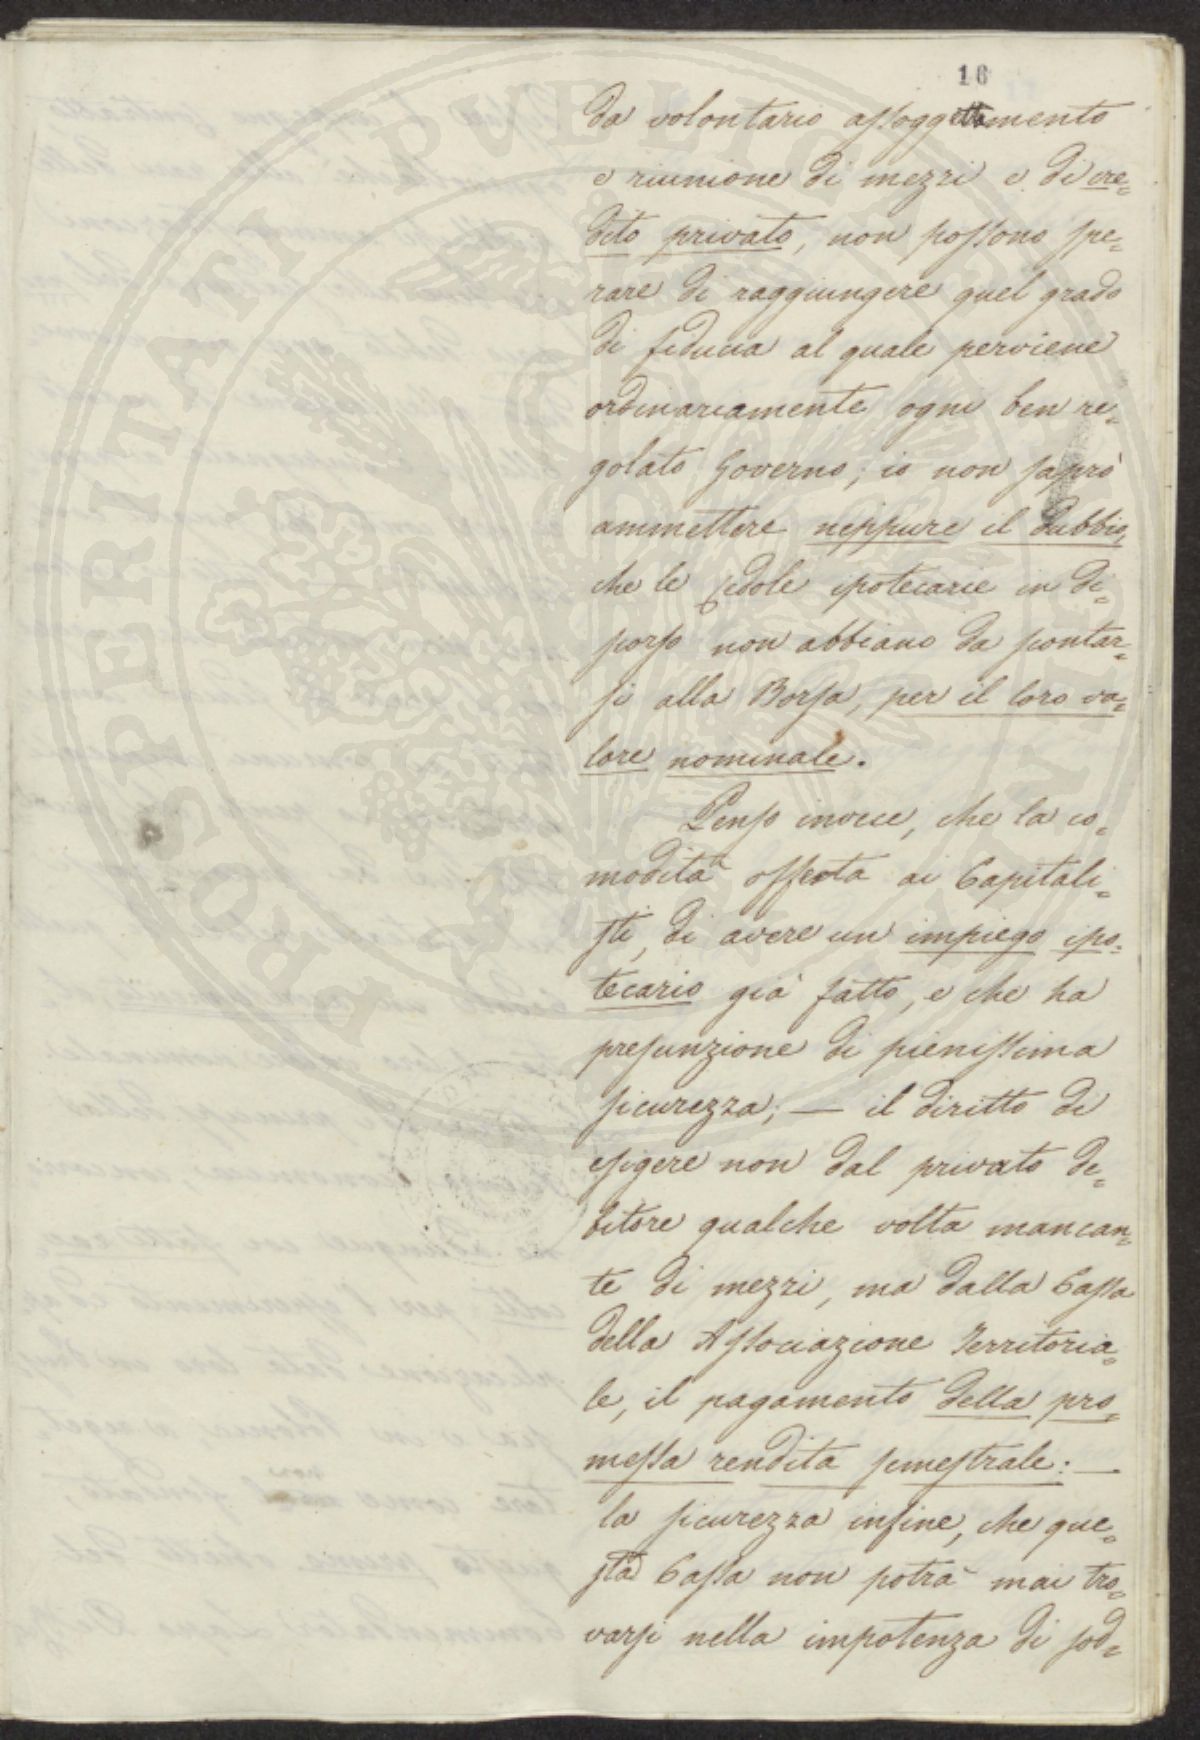 16
da volontario assoggettamento
e riunione di mezzi e di cre=
dito privato, non possono spe=
rare di raggiungere quel grado
di fiducia al quale perviene
ordinariamente ogni ben re=
golato Governo; io non saprò
ammettere neppure il dubbio,
che le Cedole ipotecarie in di=
scorso non abbiano da scontar=
si alla Borsa, per il loro va=
lore nominale.
Penso invece, che la co=
modità offerta ai Capitali=
sti, di avere un impiego ipo=
tecario già fatto, e che ha
presunzione di pienissima
sicurezza; — il diritto di
esigere non dal privato de=
bitore qualche volta mancan=
te di mezzi, ma dalla Cassa
della Associazione Territoria=
le, il pagamento della pro=
messa rendita semestrale: —
la sicurezza infine, che que=
sta Cassa non potrà mai tro=
varsi nella impotenza di sod=
PROSPERITATI PUBLICAE